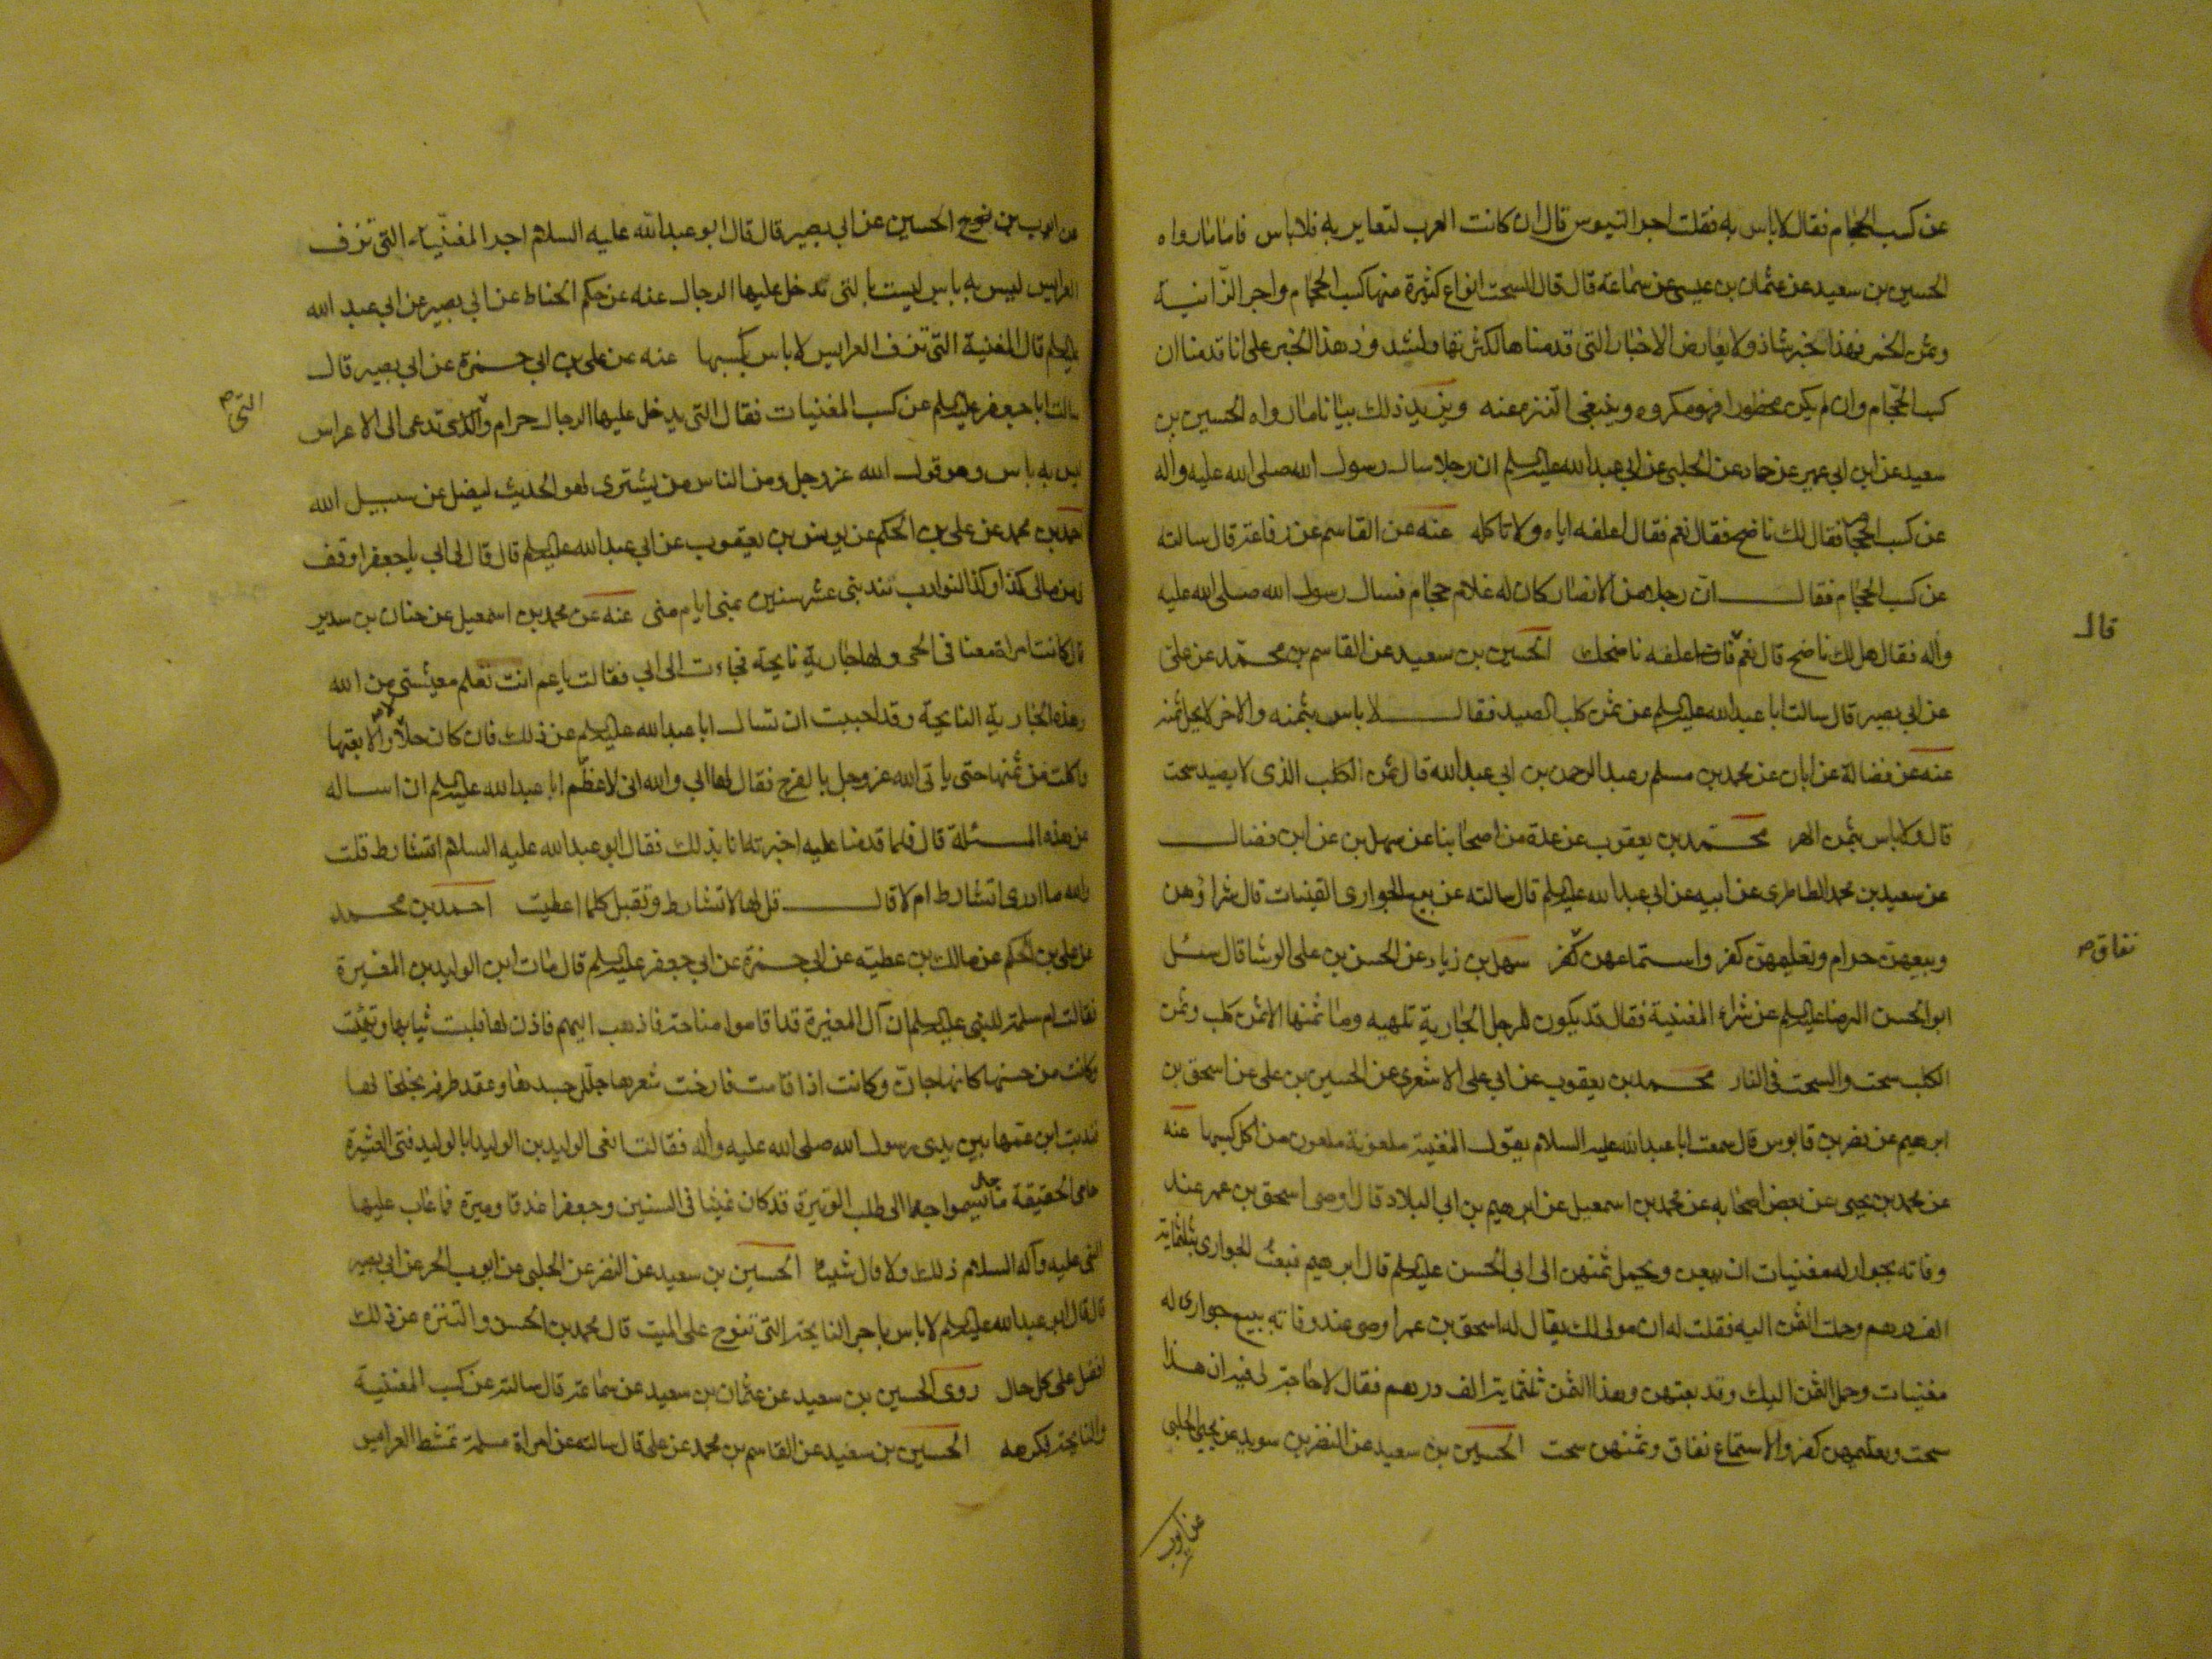 عن كسب الحجام فقال لا باس به فقلت اجر التيوس قال ان كانت العرب لتعاير به فلا باس فاما ما رواه
الحسين بن سعيد عن عثمان بن عيسى عن سماعة قال قال السحت انواع كثيرة منها كسب الحجام واجر الزانية
وثمن الخمر فهذا الخبر شاذ ولا يعارض الاخبار التي قدمناها لكثرتها ولشذوذ هذا الخبر على انا قدمنا ان
كسب الحجام وان لم يكن محظورا فهو مكروه وينبغي التنزه عنه ويزيد ذلك بيانا ما رواه الحسين بن
سعيد عن ابن ابي عمير عن حماد عن الحلبي عن ابي عبد الله عليه السلم ان رجلا سال رسول الله صلى الله عليه واله
عن كسب الحجام فقال لك ناضح فقال نعم فقال اعلفه اياه ولا تاكله عنه عن القاسم عن رفاعة قال سالته
عن كسب الحجام فقال ان رجلا من الانصار كان له غلام حجام فسال رسول الله صلى الله عليه
واله فقال هل لك ناضح قال نعم قال فاعلفه ناضحك الحسين بن سعيد عن القاسم بن محمد عن علي
قال
عن ابي بصير قال سالت ابا عبد الله عليه السلم عن ثمن كلب الصيد فقال لا باس بثمنه والاخر لا يحل ثمنه
عنه عن فضالة عن ابان عن محمد بن مسلم وعبد الرحمن بن ابي عبد الله قال ثمن الكلب الذي لا يصيد سحت
قال ولا باس بثمن الهر محمد بن يعقوب عن عدة من اصحابنا عن سهل بن عن ابن فضال
عن سعيد بن محمد الطاطري عن ابيه عن ابي عبد الله عليه السلم قال سالته عن بيع الجواري القينات قال شراؤهن
وبيعهن حرام وتعليمهن كفر واستماعهن كفر سهل بن زياد عن الحسن بن علي الوشا قال سئل
نفاق ص
ابو الحسن الرضا عليه السلم عن شراء المغنية فقال قد يكون للرجل الجارية تلهيه وما ثمنها الا ثمن كلب وثمن
الكلب سحت والسحت في النار محمد بن يعقوب عن ابي علي الاشعري عن الحسين بن علي عن اسحق بن
ابرهيم عن نضر بن قابوس قال سمعت ابا عبد الله عليه السلام يقول المغنية ملعونة ملعون من اكل كسبها عنه
عن محمد بن يحيى عن بعض اصحابه عن محمد بن اسمعيل عن ابرهيم بن ابي البلاد قال اوصى اسحق بن عمر عند
وفاته بجوار له مغنيات ان نبيعهن ونحمل ثمنهن الى ابي الحسن عليه السلم قال ابرهيم فبعت الجواري بثلثمائة
الف درهم وحملت الثمن اليه فقلت له ان مولى لك يقال له اسحق بن عمر اوصى عند وفاته ببيع جواري له
مغنيات وحمل الثمن اليك وقد بعتهن وهذا الثمن ثلثمائة الف درهم فقال لا حاجة لي فيه ان هذا
سحت وتعليمهن كفر والاستماع نفاق وثمنهن سحت الحسين بن سعيد عن النضر بن سويد عن يحيى الحلبي
عن ايوب
عن ايوب بن نوح الحسين عن ابي بصير قال قال ابو عبد الله عليه السلام اجر المغنية التي تزف
العرايس ليس به باس ليست بالتي تدخل عليها الرجال عنه عن حكم الحناط عن ابي بصير عن ابي عبد الله
عليه السلم قال المغنية التي تزف العرايس لا باس بكسبها عنه عن علي بن ابي حمزة عن ابي بصير قال
سالت ابا جعفر عليه السلم عن كسب المغنيات فقال التي يدخل عليها الرجال حرام والذي تدعى الى الاعراس
التي ص
ليس به باس وهو قول الله عز وجل ومن الناس من يشتري لهو الحديث ليضل عن سبيل الله
احمد بن محمد عن علي بن الحكم عن يونس بن يعقوب عن ابي عبد الله عليه السلم قال قال لي ابي يا جعفر اوقف
لي من مالي كذا وكذا لنوادب تندبني عشر سنين بمنى ايام منى عنه عن محمد بن اسمعيل عن حنان بن سدير
قال كانت امراة معنا في الحي ولها جارية نايحة فجاءت الى ابي فقالت يا عم انت تعلم معيشتي من الله
وهذه الجارية النايحة وقد احببت ان تسال ابا عبد الله عليه السلم عن ذلك فان كان حلالا والا بعتها
واكلت من ثمنها حتى ياتي الله عز وجل بالفرج فقال لها ابي والله اني لاعظم ابا عبد الله عليه السلم ان اساله
عن هذه المسئلة قال فلما قدمنا عليه اخبرته انا بذلك فقال ابو عبد الله عليه السلام اتشارط قلت
والله ما ادري اتشارط ام لا قال قل لها لا تشارط وتقبل كلما اعطيت احمد بن محمد
عن علي بن الحكم عن مالك بن عطية عن ابي حمزة عن ابي جعفر عليه السلم قال مات ابن الوليد بن المغيرة
فقالت ام سلمة للنبي عليه السلم ان آل المغيرة قد اقاموا مناحة فاذهب اليهم فاذن لها فلبست ثيابها وتهيئت
وكانت من حسنها كانها جان وكانت اذا قامت فارخت شعرها جلل جسدها وعقد طرفيه بخلخالها
فندبت ابن عمها بين يدي رسول الله صلى الله عليه واله فقالت انعى الوليد بن الوليد ابا الوليد فتى العشيرة
حامي الحقيقة ماجد يسموا الى طلب الوتيرة قد كان غيثا في السنين وجعفرا غدقا وميرة فما عاب عليها
النبي عليه وآله السلام ذلك ولا قال شيئا الحسين بن سعيد عن النضر عن الحلبي عن ايوب الحر عن ابي بصير
قال قال ابو عبد الله عليه السلم لا باس باجر النايحة التي تنوح على الميت قال محمد بن الحسن والتنزه عن ذلك
افضل على كل حال روى الحسين بن سعيد عن عثمان بن سعيد عن سماعة قال سالته عن كسب المغنية
والنايحة فكرهه الحسين بن سعيد عن القاسم بن محمد عن علي قال سالته عن امراة مسلمة تمشط العرايس